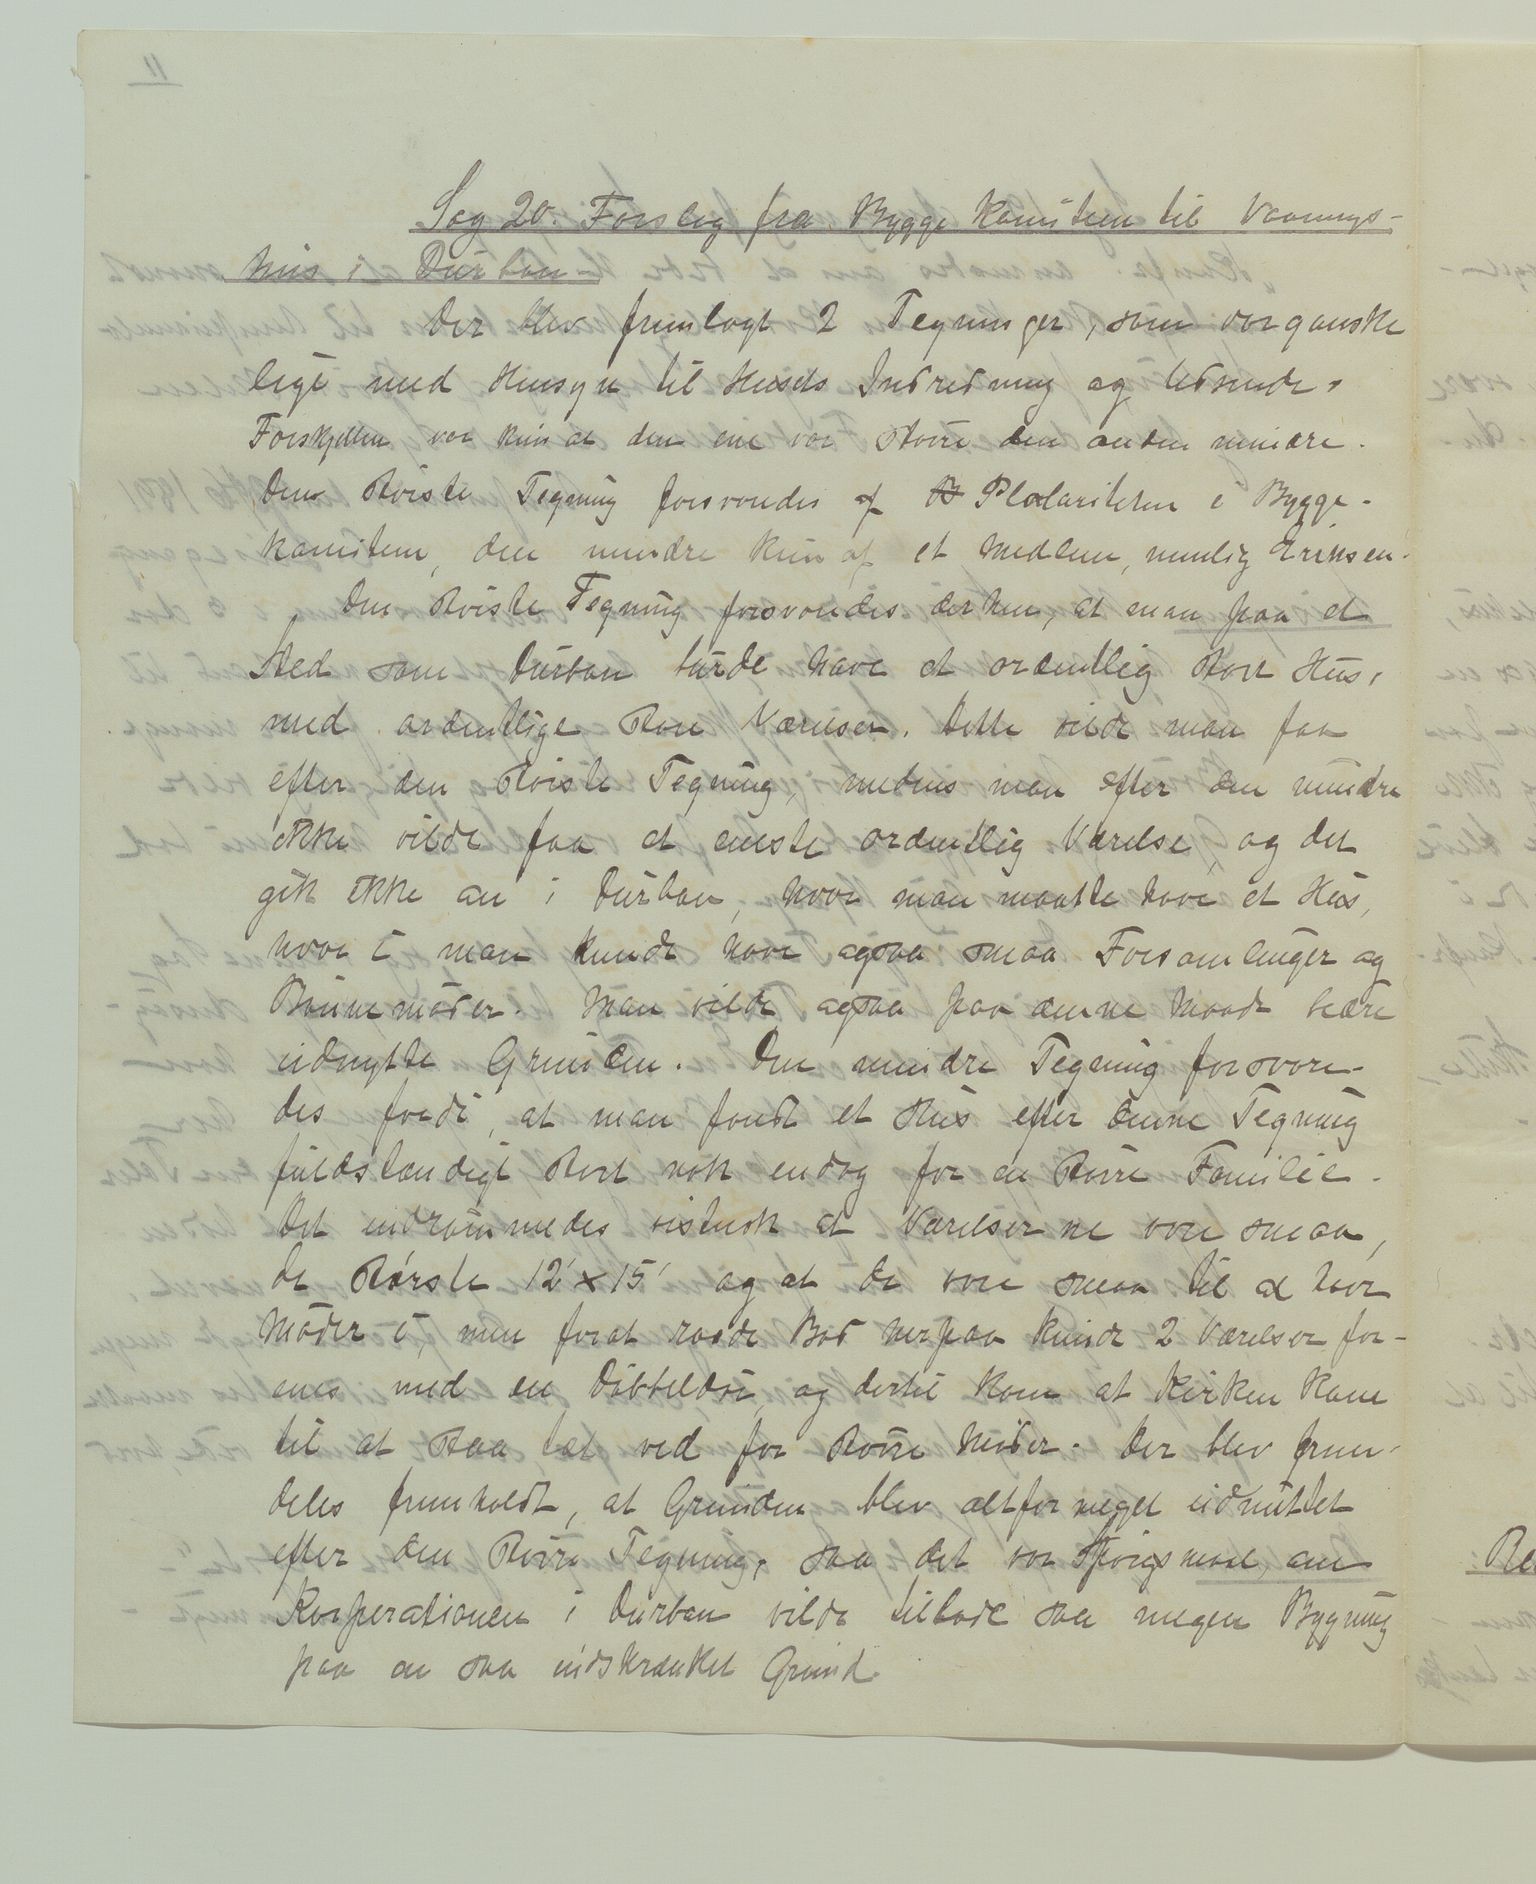 Sag 20. Forslag fra Byggekomiteen til Vaanings-
hus i Durban.
Der blev fremlagt 2 Tegninger, som var ganske
lige med Hensyn til Husets Indredning og Udseende,
Forskjellen var kun at den ene var større den anden mindre.
Den største Tegning forsvaredes af Pluraliteten i Bygge-
komiteen, den mindre kun af et Medlem, nemlig Eriksen.
Den største Tegning forsvaredes derhen, at man paa et
Sted som Durban burde have et ordentlig stort Hus,
med ordentlige store Værelser. Dette vilde man faa
efter den største Tegning, medens man efter den mindre
ikke vilde faa et eneste ordentlig Værelse, og det
gik ikke an i Durban, hvor man maatte have et Hus,
hvor i man kunde have ogsaa smaa Forsamlinger og
Bønnemøder. Man vilde ogsaa paa denne Maade bedre
udnytte Grunden. Den mindre Tegning forsvare-
des fordi, at man fandt et Hus efter denne Tegning
fuldstændigt stort nok endog for en større Familie.
Det indrømmedes vistnok at Værelserne vare smaa,
de største 12' x 15' og at de vare smaa til at have
Møder i, men forat raade Bod herpaa kunde 2 Værelser for-
enes med en Dobbeldør, og dertil kom at Kirken kom
til at staa tæt ved for større Møder. Der blev frem-
deles fremholdt, at Grunden blev altfor meget udnüttet
efter den større Tegning, saa det var Spørgsmaal, om
Korperationen i Durban vilde tillade saa megen Bygning
paa en saa indskrænket Grund.